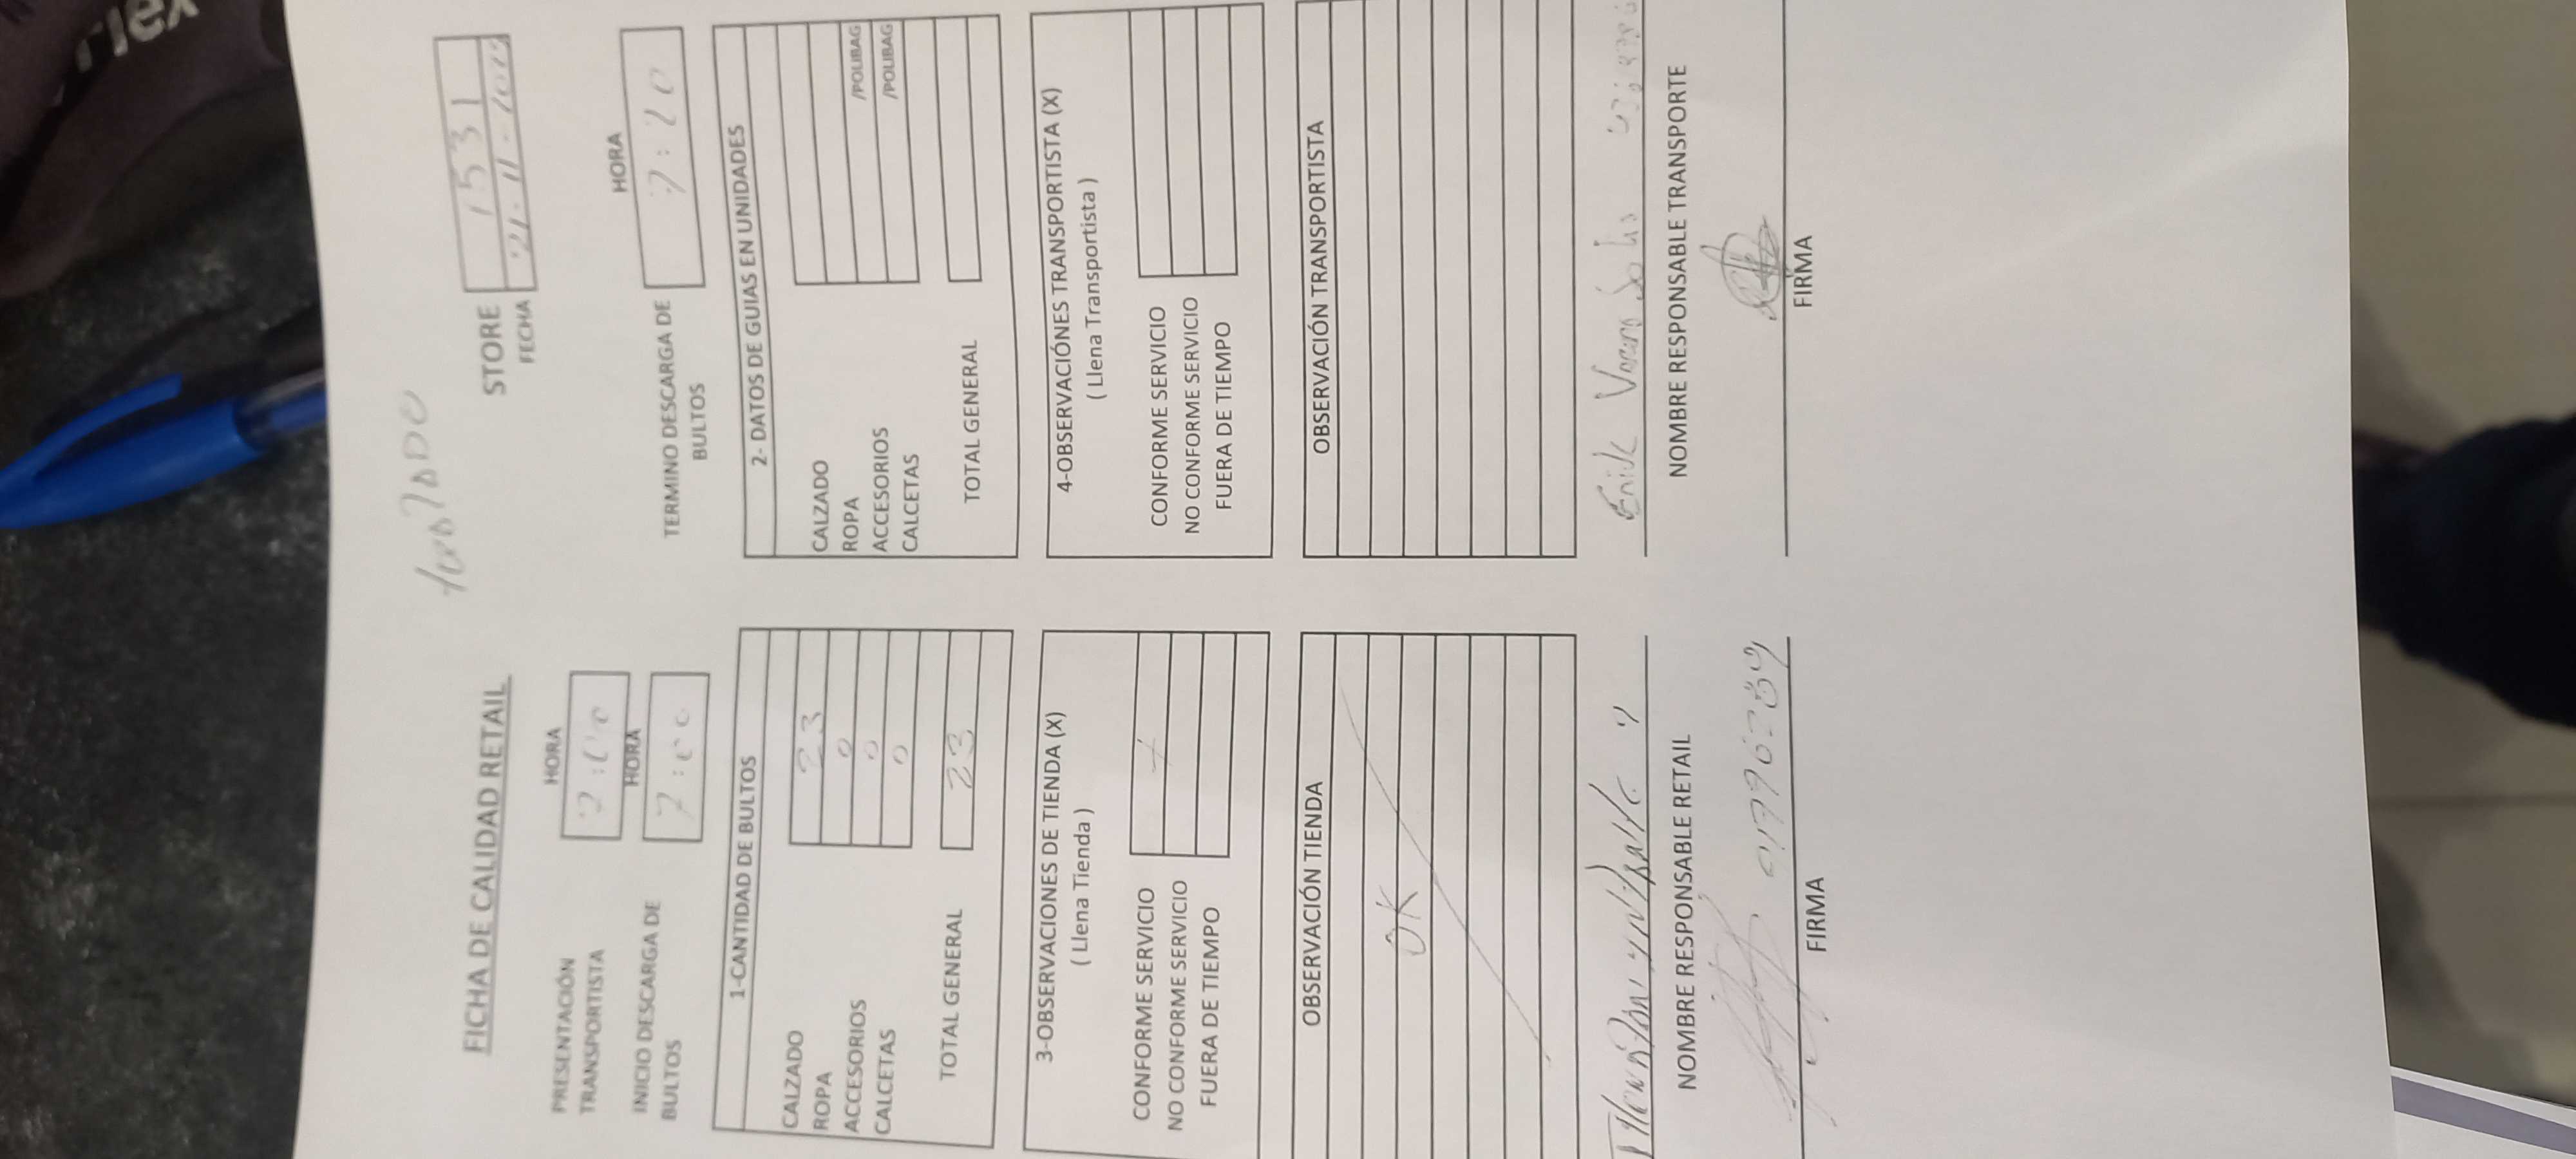 FICHA DE CALIDAD RETAIL
STORE 1531
FECHA 21-11-
HORA
PRESENTACIÓN
TRANSPORTISTA 7:00
HORA HORA
INICIO DESCARGA DE
BULTOS 7:00
TERMINO DESCARGA DE
BULTOS 7:20
1-CANTIDAD DE BULTOS
CALZADO 23
ROPA 0
ACCESORIOS 0
CALCETAS 0
TOTAL GENERAL 23
2- DATOS DE GUIAS EN UNIDADES
CALZADO
ROPA
ACCESORIOS /POLIBAG
CALCETAS /POLIBAG
TOTAL GENERAL
3-OBSERVACIONES DE TIENDA (X)
( Llena Tienda )
CONFORME SERVICIO X
NO CONFORME SERVICIO
FUERA DE TIEMPO
4-OBSERVACIÓNES TRANSPORTISTA (X)
( Llena Transportista )
CONFORME SERVICIO
NO CONFORME SERVICIO
FUERA DE TIEMPO
OBSERVACIÓN TIENDA
OK
OBSERVACIÓN TRANSPORTISTA
NOMBRE RESPONSABLE RETAIL
FIRMA
NOMBRE RESPONSABLE TRANSPORTE
FIRMA